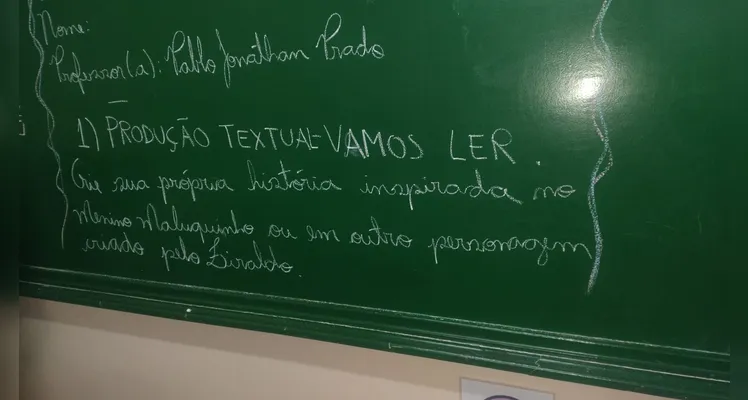 Nome:
Professor(a): Pablo Jonathan Prado
1) PRODUÇÃO TEXTUAL-VAMOS LER.
Crie sua própria história inspirada no
Menino Maluquinho ou em outro personagem
criado pelo Ziraldo.